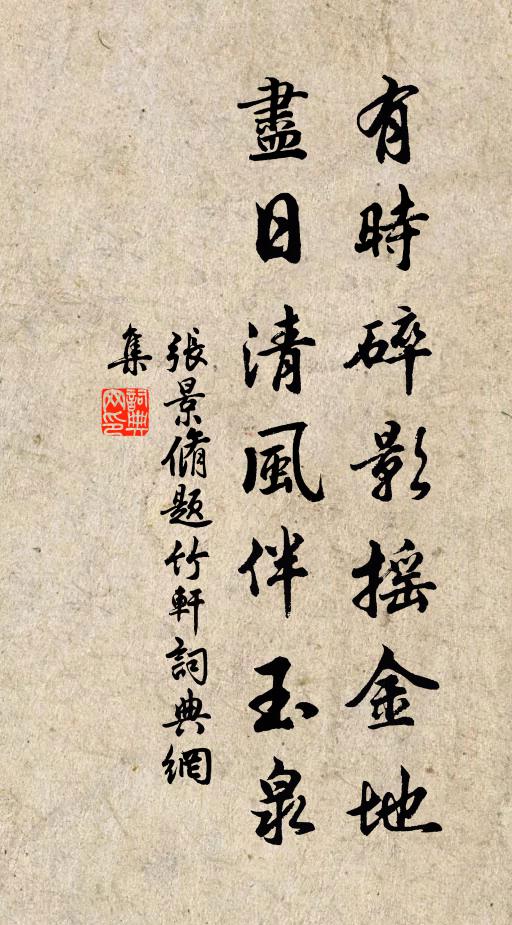 有時碎影搖金地
盡日清風伴玉泉
張景脩題竹軒詞典網
集
詞典
網印